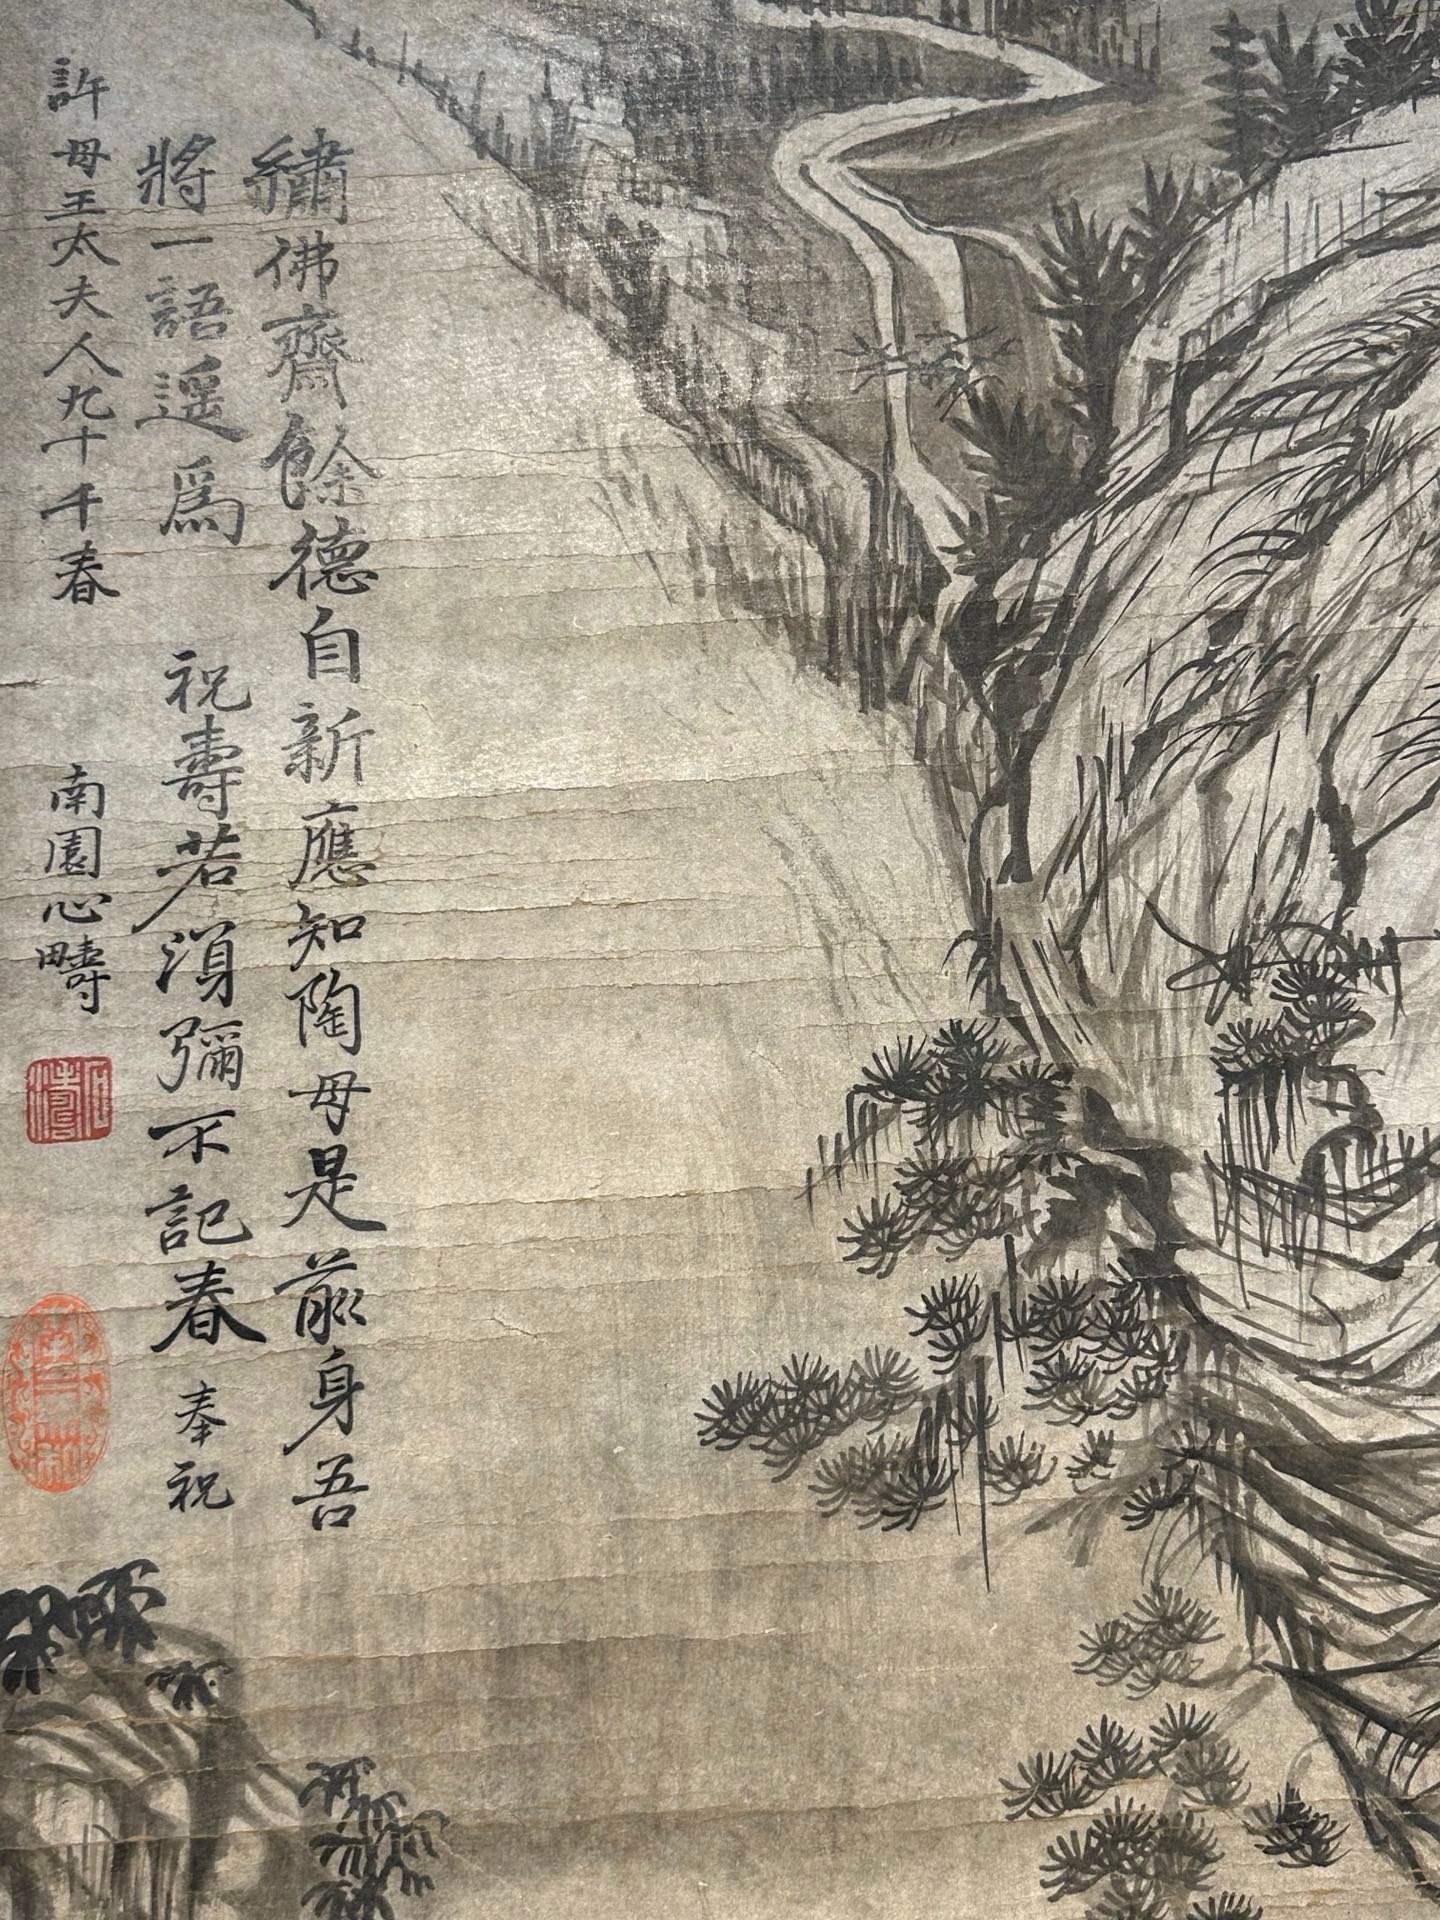 繡佛齋餘德自新應知陶母是前身吾
將一語遥爲祝壽若湏彌不記春奉祝
許母王太夫人九十千春南園心疇